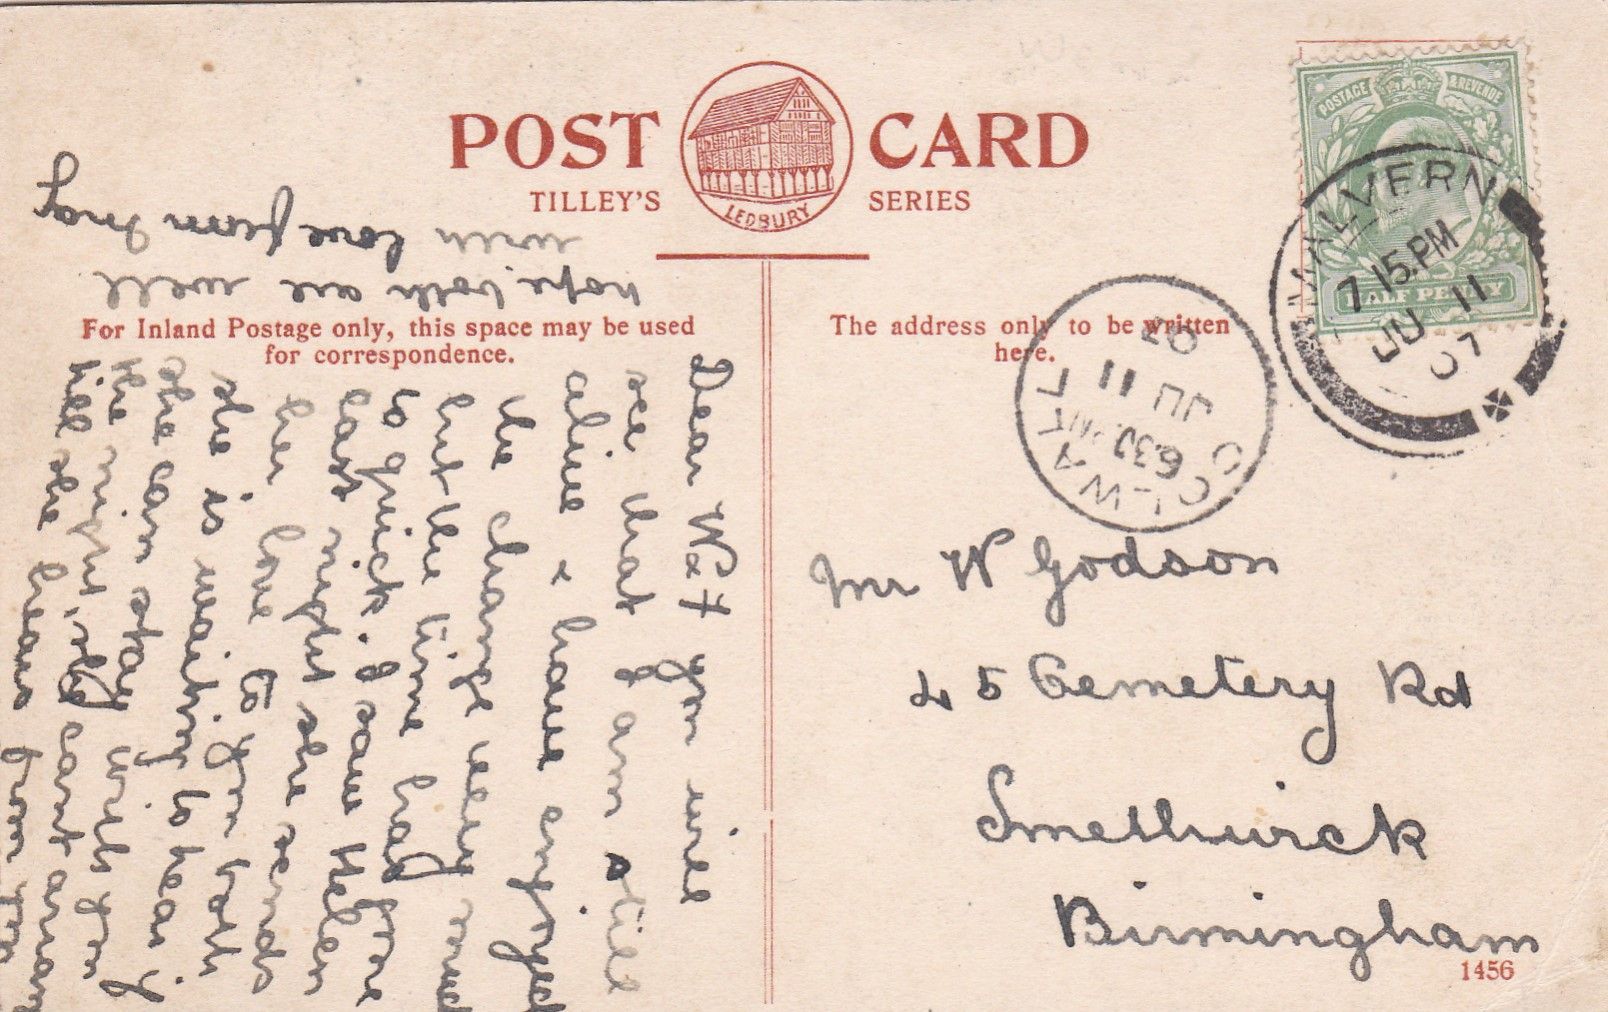 POST CARD
TILLEY'S SERIES
LEDBURY
For Inland Postage only, this space may be used
for correspondence.
The address only to be written
here.
POSTAGE & REVENUE
HALF PENNY
MALVERN
7.15.PM
JU 11
07
COLWALL
6.30 PM
JU 11
07
Mr W Godson
45 Cemetery Rd
Smethwick
Birmingham
1456
Dear W & F you will
see that I am still
alive & have enjoyed
the change very much
but the time had gone
to quick. I saw Helen
last night she sends
her love to you both
she is waiting to hear if
she can stay with you
the night, she cant arrange
till she hears from you
hope both are well
with love from May